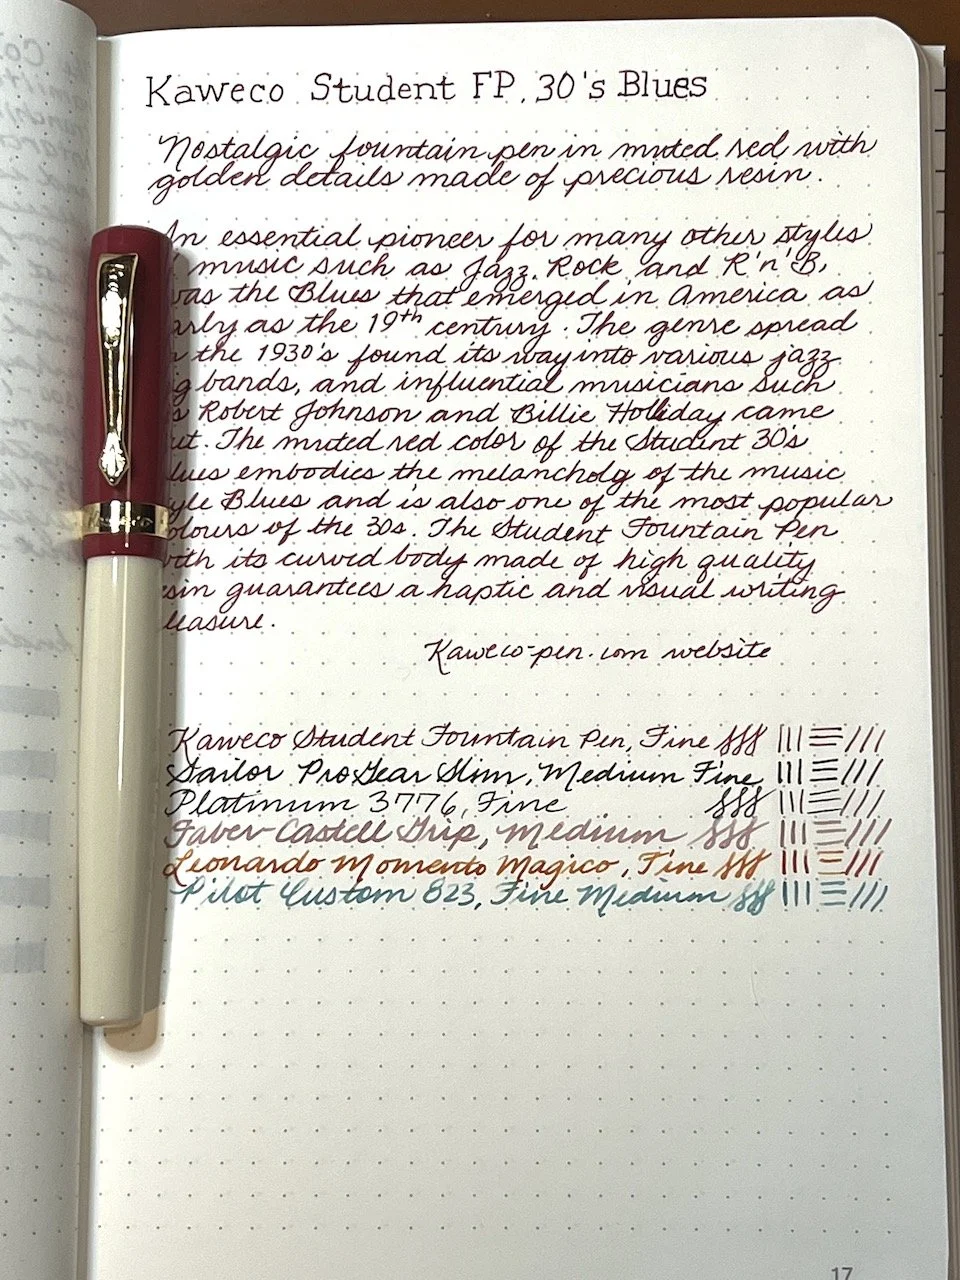 Kaweco Student FP, 30's Blues
Nostalgic fountain pen in muted red with
golden details made of precious resin.
An essential pioneer for many other styles
music such as Jazz, Rock and R'n'B,
was the Blues that emerged in America as
arly as the 19th century. The genre spread
the 1930's found its way into various jazz
g bands, and influential musicians such
s Robert Johnson and Billie Holliday came
ut. The muted red color of the Student 30's
lues embodies the melancholy of the music
yle Blues and is also one of the most popular
olours of the 30s. The Student Fountain Pen
ith its curved body made of high quality
esin guarantees a haptic and visual writing
leasure.
Kaweco-pen.com website
Kaweco Student Fountain Pen, Fine
Sailor ProGear Slim, Medium Fine
Platinum 3776, Fine
Faber-Castell Grip, Medium
Leonardo Momento Magico, Fine
Pilot Custom 823, Fine Medium
Kaweco
17